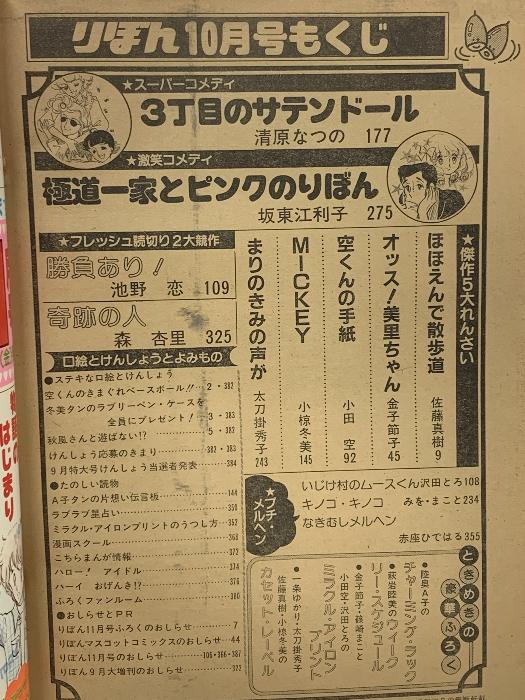 りぼん10月号もくじ
★スーパーコメディ
3丁目のサテンドール
清原なつの 177
★激笑コメディ
極道一家とピンクのりぼん
坂東江利子 275
★傑作5大れんさい
ほほえんで散歩道 佐藤真樹 9
オッス!美里ちゃん 金子節子 45
空くんの手紙 小田空 92
MICKEY 小椋冬美 145
まりのきみの声が 太刀掛秀子 243
★フレッシュ読切り2大競作
勝負あり!
池野恋 109
奇跡の人
森杏里 325
口絵とけんしょうとよみもの
●ステキな口絵とけんしょう
空くんのきまぐれベースボール!!…2・382
冬美タンのラブリーペン・ケースを
全員にプレゼント!…3・383
秋風さんと遊ばない!?…5・382
けんしょう応募のきまり…382・383
9月特大号けんしょう当選者発表…384
●たのしい読物
A子タンの片想い伝言板…144
ラブラブ星占い…350
ミラクル・アイロンプリントのうつし方…352
漫画スクール…368
こちらまんが情報…372
ハロー!アイドル…374
ハーイ おげんき!?…376
ふろくファンルーム…380
●おしらせとPR
りぼん11月号ふろくのおしらせ…7
りぼんマスコットコミックスのおしらせ…44
りぼん11月号のおしらせ…106・366・387
りぼん9月大増刊のおしらせ…322
★プチ・メルヘン
いじけ村のムースくん 沢田とろ 108
キノコ・キノコ みを・まこと 234
なきむしメルヘン
赤座ひではる 355
ときめきの豪華ふろく
●陸奥A子の
チャーミング・ラック
●萩岩睦美のウィークリー・スケジュール
●金子節子・篠崎まこと
小田空・沢田とろの
ミラクル・アイロンプリント
●一条ゆかり・太刀掛秀子
佐藤真樹・小椋冬美の
カセット・レーベル